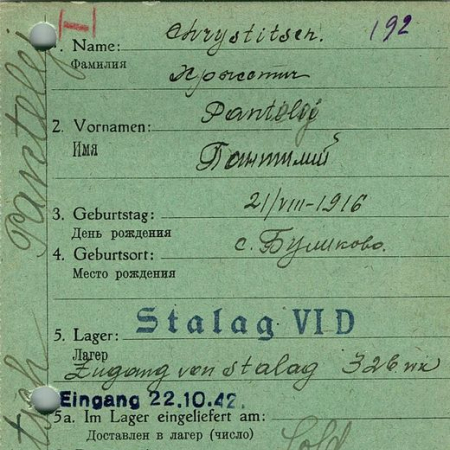 192
1. Name: Chrystitsch.
Фамилия Хрыстич
2. Vornamen: Pantelej
Имя Пантилий
3. Geburtstag: 21/VIII-1916
День рождения
4. Geburtsort: с. Булшково.
Место рождения
5. Lager: Stalag VI D
Лагер
Zugang von Stalag 326 VIK
Eingang 22.10.42.
5a. Im Lager eingeliefert am:
Доставлен в лагер (число)
Sold
Pantelej